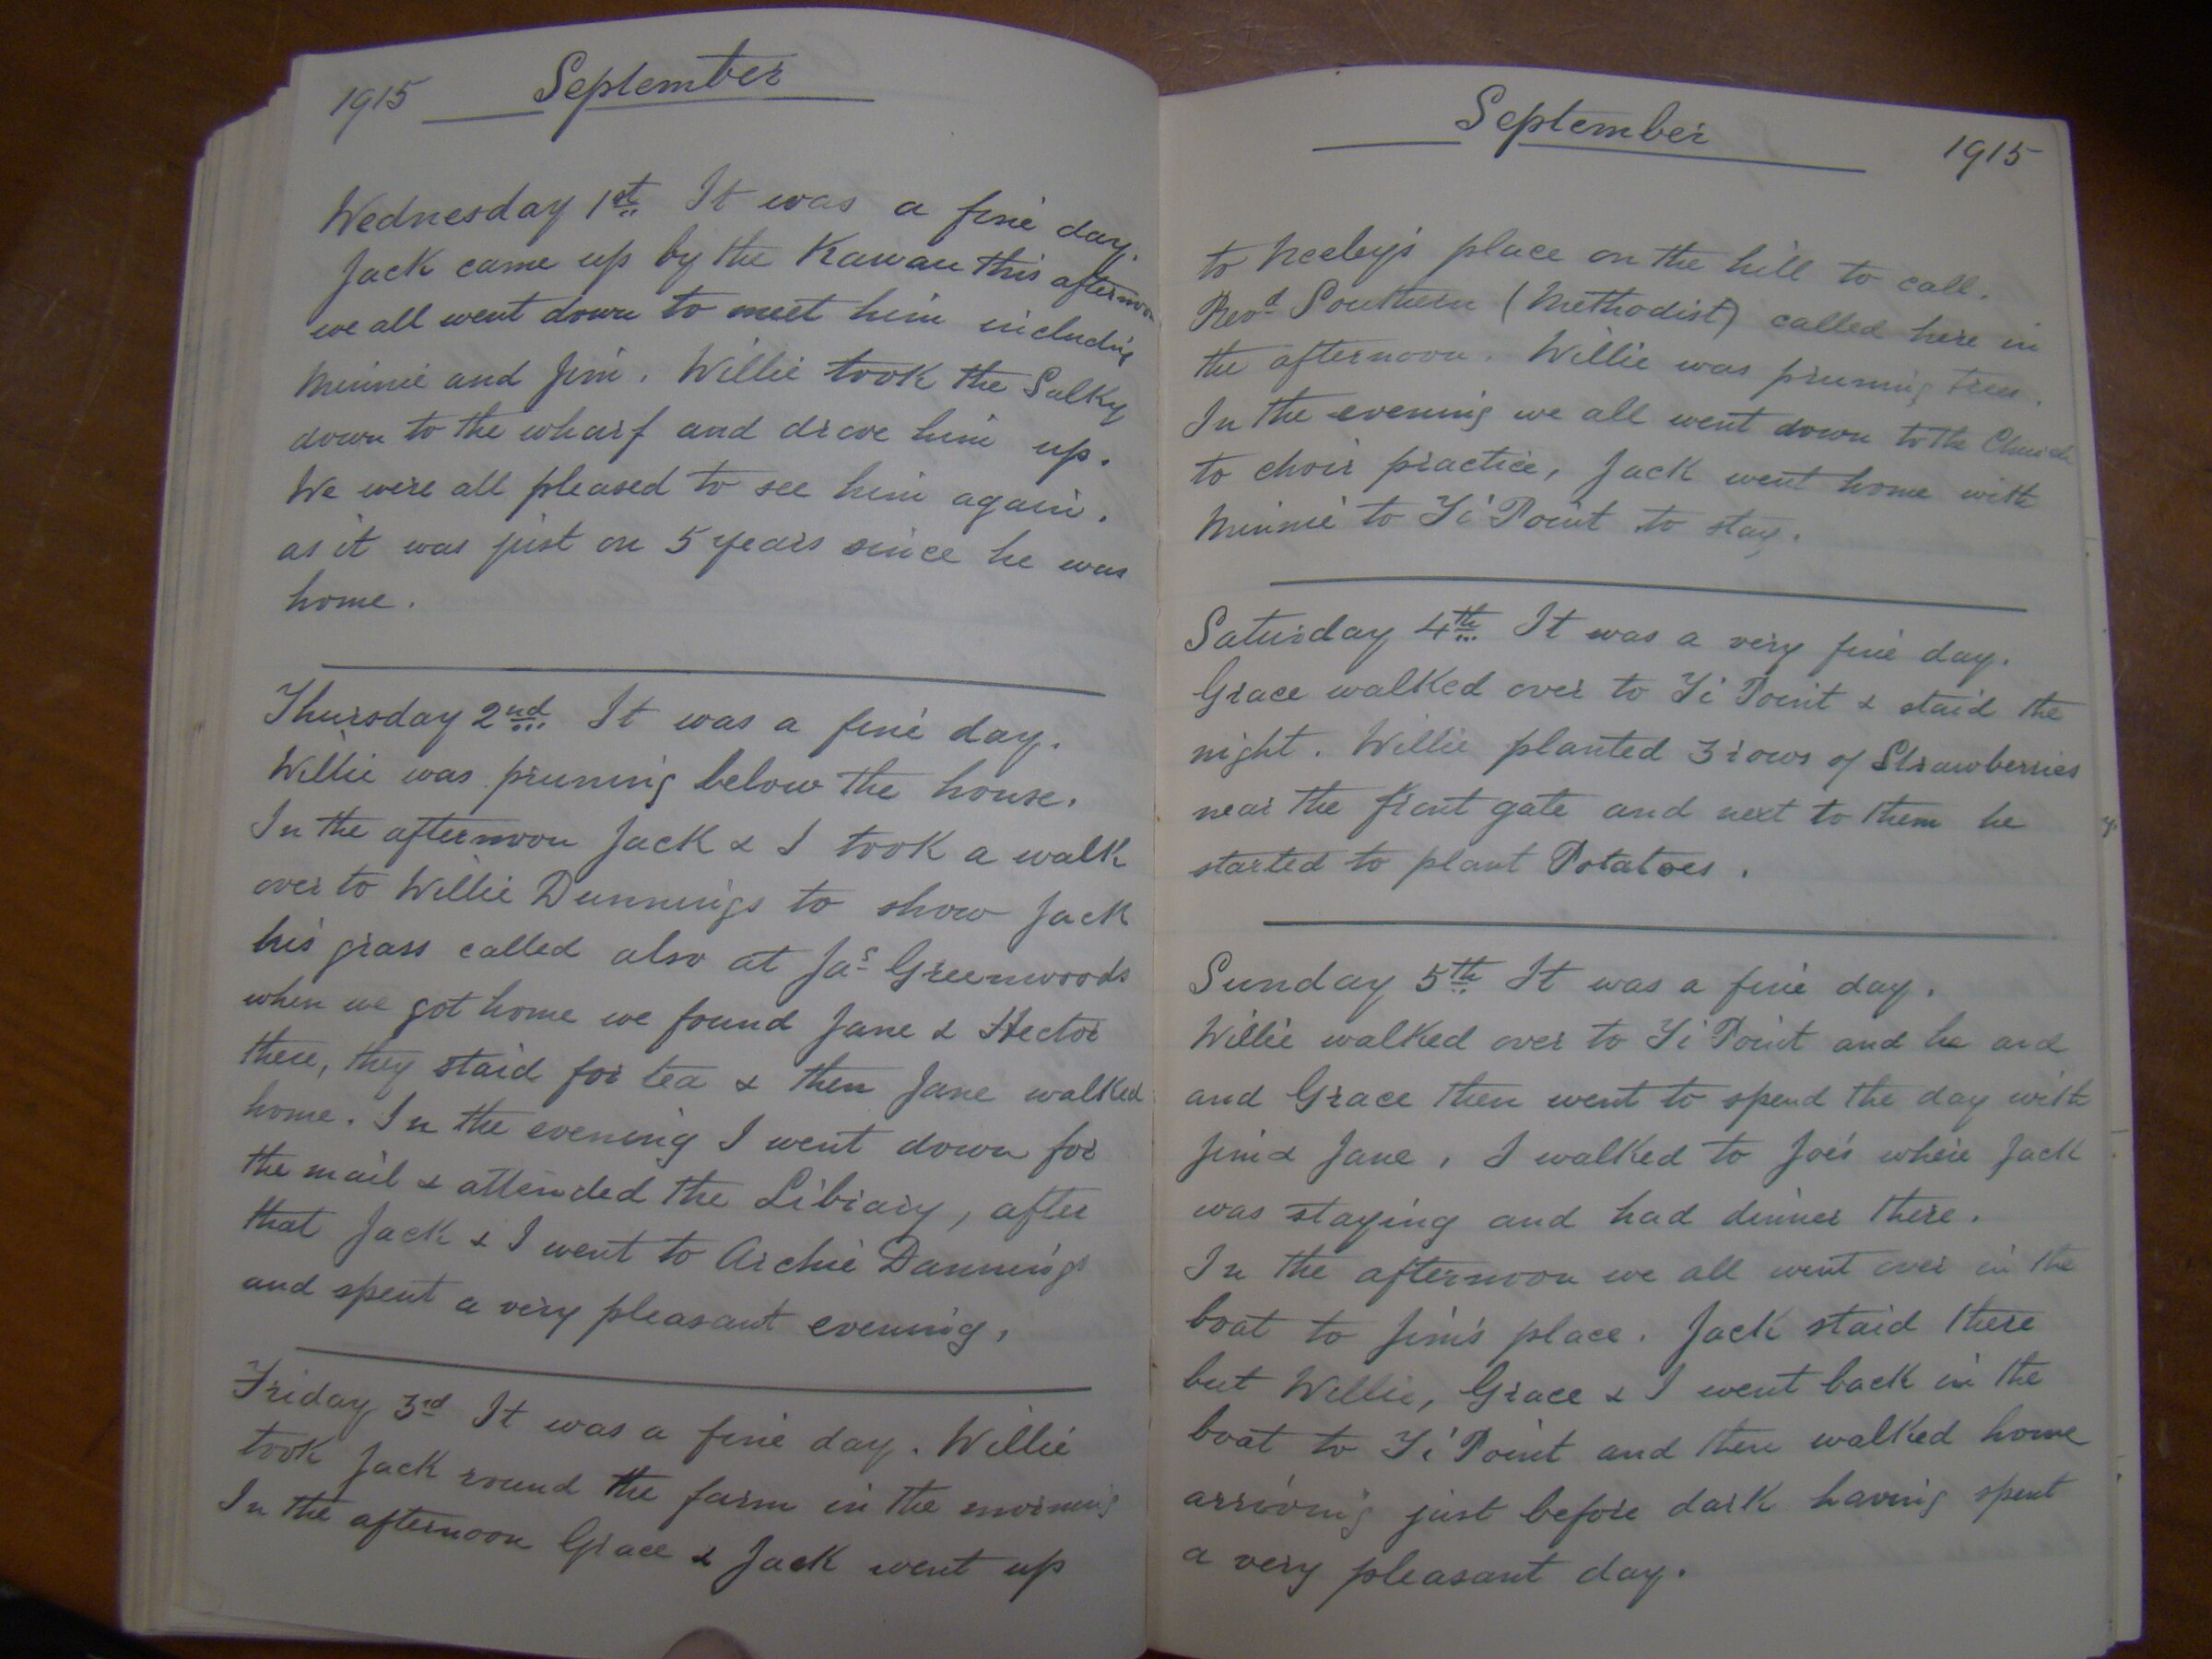 1915 September
Wednesday 1st It was a fine day.
Jack came up by the Kawau this afternoon
we all went down to meet him including
Minnie and Jim. Willie took the Sulky
down to the wharf and drove him up.
We were all pleased to see him again.
as it was just on 5 years since he was
home.
Thursday 2nd It was a fine day.
Willie was pruning below the house.
In the afternoon Jack & I took a walk
over to Willie Dunnings to show Jack
his grass called also at Jas Greenwoods
when we got home we found Jane & Hector
there, they staid for tea & then Jane walked
home. In the evening I went down for
the mail & attended the Library, after
that Jack & I went to Archie Dunnings
and spent a very pleasant evening.
Friday 3rd It was a fine day. Willie
took Jack round the farm in the morning
In the afternoon Grace & Jack went up
September 1915
to Neeley's place on the hill to call.
Revd Southern (Methodist) called here in
the afternoon. Willie was pruning trees.
In the evening we all went down to the Church
to choir practice, Jack went home with
Minnie to Ti Point to stay.
Saturday 4th It was a very fine day.
Grace walked over to Ti Point & staid the
night. Willie planted 3 rows of Strawberries
near the front gate and next to them he
started to plant Potatoes.
Sunday 5th It was a fine day.
Willie walked over to Ti Point and he and
and Grace then went to spend the day with
Jim & Jane, I walked to Joe's where Jack
was staying and had dinner there.
In the afternoon we all went over in the
boat to Jim's place. Jack staid there
but Willie, Grace & I went back in the
boat to Ti Point and then walked home
arriving just before dark having spent
a very pleasant day.